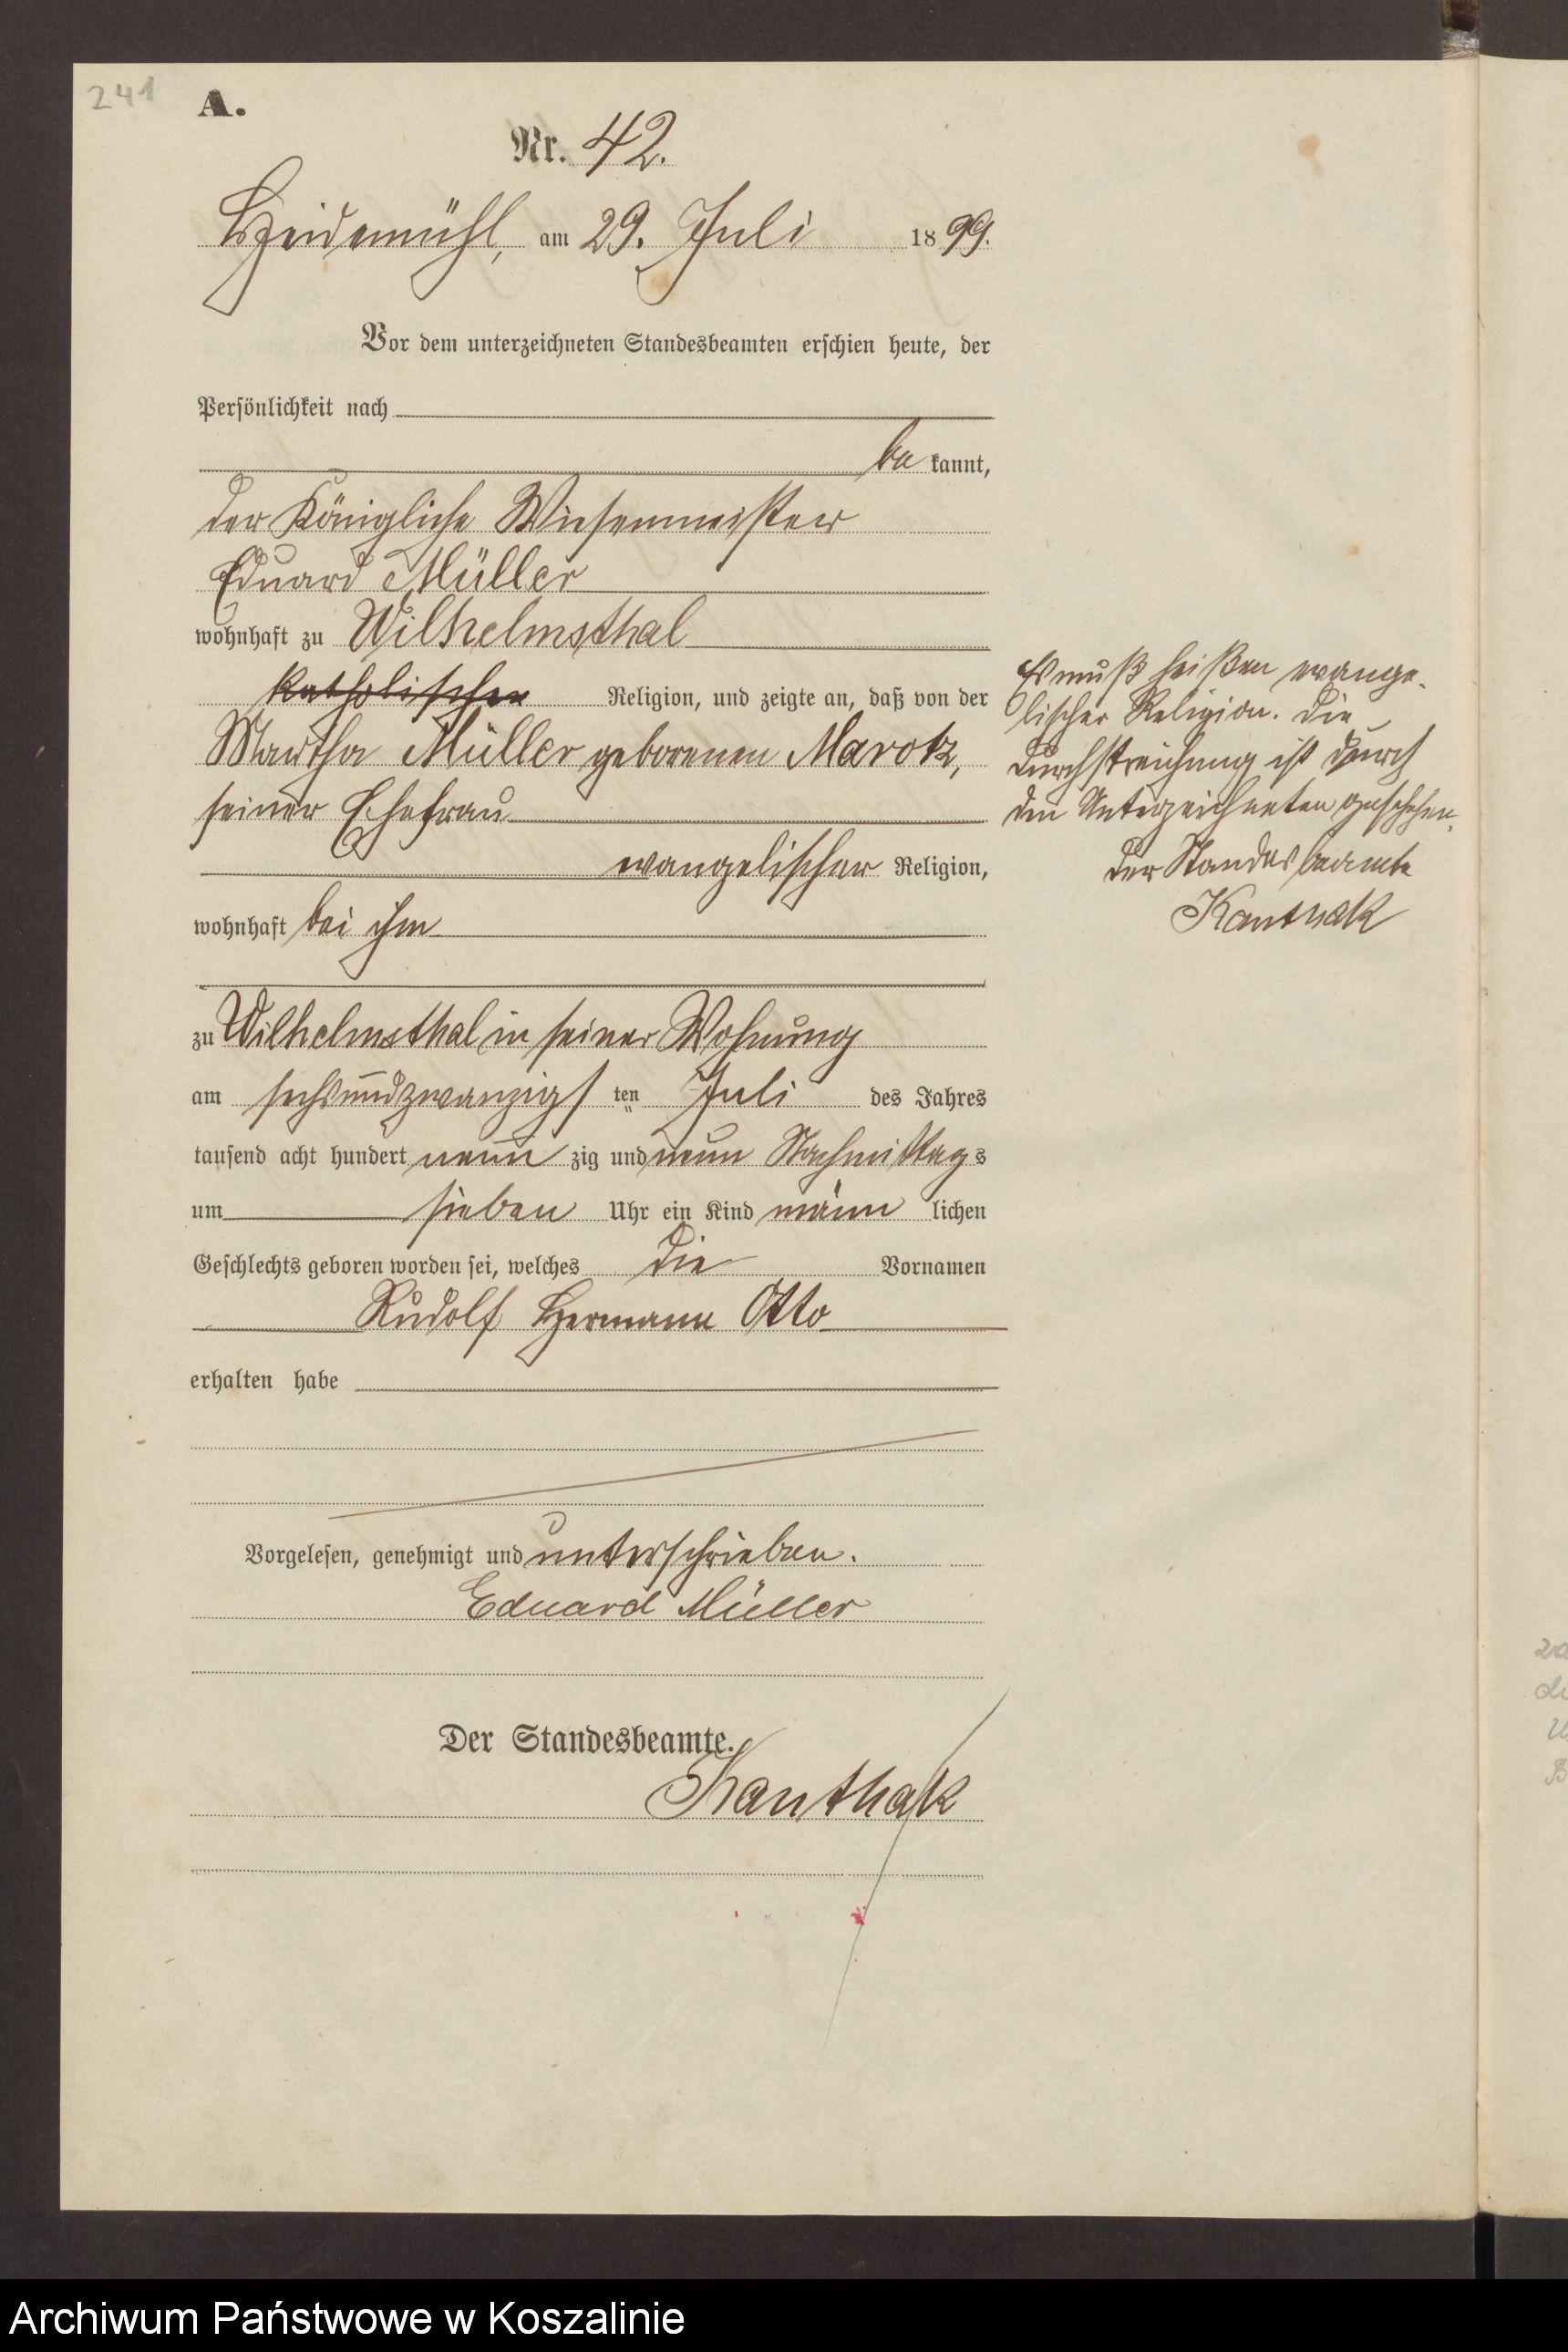 241
A.
Nr. 42.
Heidemühl, am 29. Juli 1899.
Vor dem unterzeichneten Standesbeamten erschien heute, der
Persönlichkeit nach
be kannt,
der Königliche Wiesenmeister
Eduard Müller
wohnhaft zu Wilhelmsthal
katholischer Religion, und zeigte an, daß von der
Martha Müller geborenen Marotz,
seiner Ehefrau
evangelischer Religion,
wohnhaft bei ihm
zu Wilhelmsthal in seiner Wohnung
am sechsundzwanzigs ten Juli des Jahres
tausend acht hundert neun zig und neun Nachmittags
um sieben Uhr ein Kind männ lichen
Geschlechts geboren worden sei, welches die Vornamen
Rudolf Hermann Otto
erhalten habe
Vorgelesen, genehmigt und unterschrieben.
Eduard Müller
Der Standesbeamte.
Kanthak
Es muß heißen evange-
lischer Religion. Die
Durchstreichung ist durch
den Unterzeichneten geschehen.
Der Standesbeamte
Kanthak
Archiwum Państwowe w Koszalinie